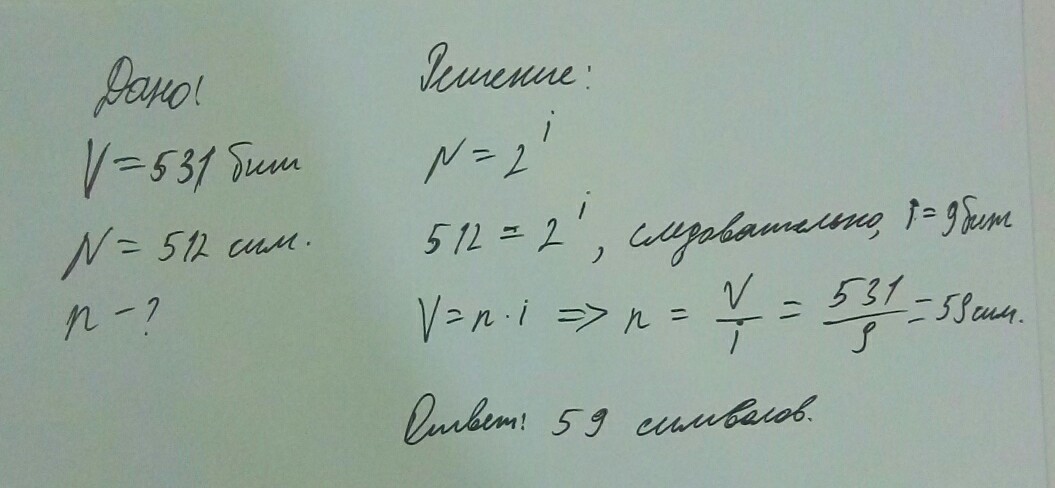 Дано!
V = 531 бит
N = 512 сим.
n - ?
Решение:
N = 2^i
512 = 2^i, следовательно, i = 9 бит
V = n · i => n = V/i = 531/9 = 59 сим.
Ответ! 59 символов.